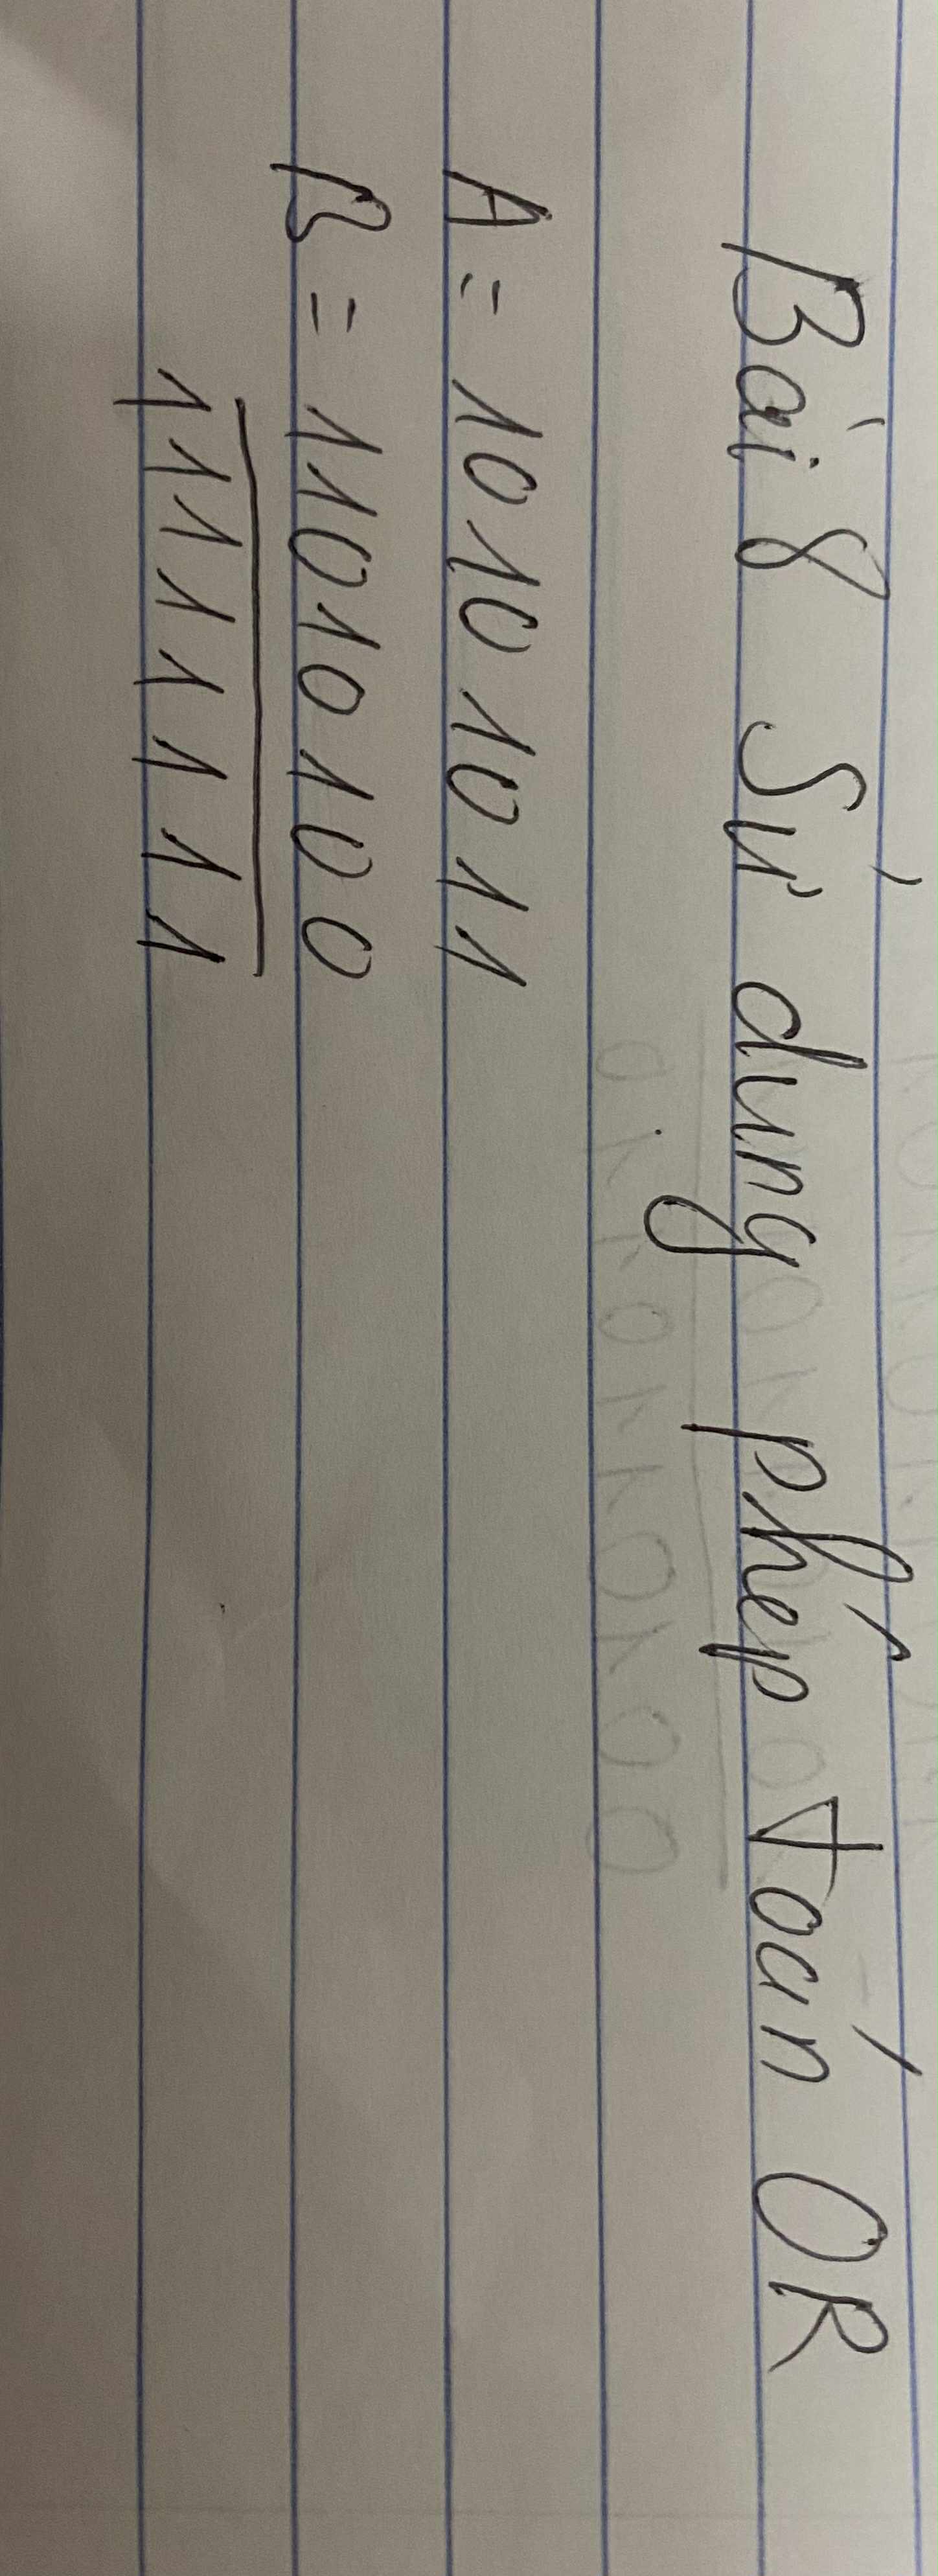 Bài 8 Sử dụng phép toán OR
A = 10101011
B = 11010100
11111111